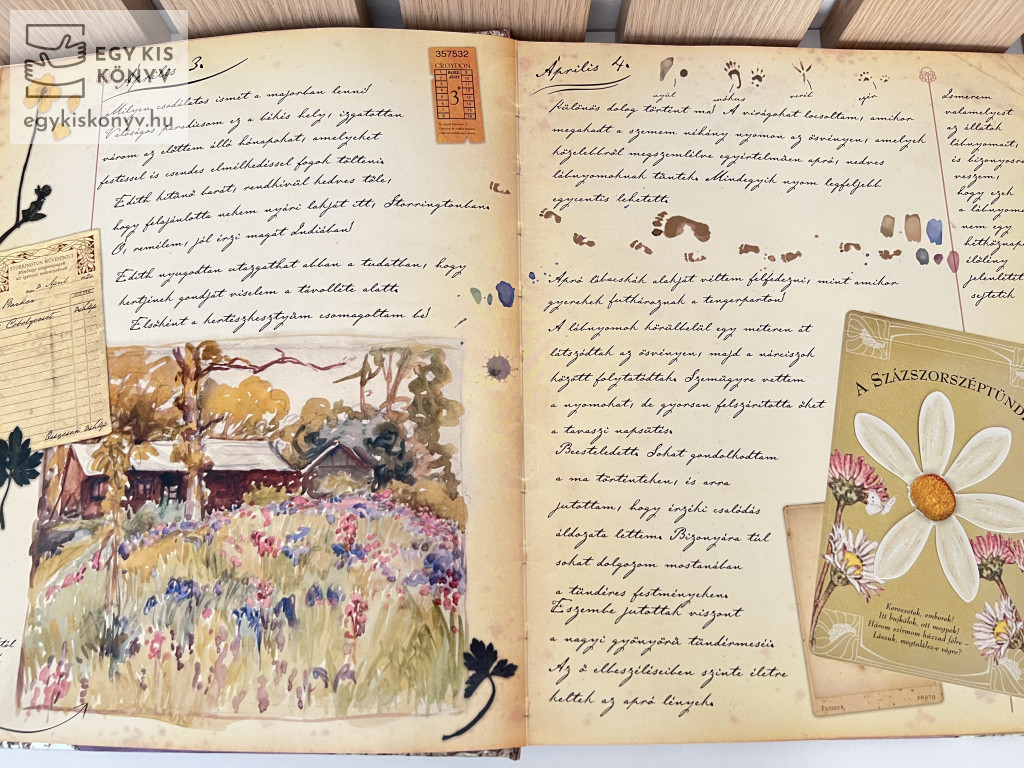 EGY KIS
KÖNYV
egykiskonyv.hu
Április 3.
Milyen csodálatos ismét a majorban lenni!
Valóságos paradicsom ez a békés hely, izgatottan
várom az előttem álló hónapokat, amelyeket
festéssel és csendes elmélkedéssel fogok tölteni.
Edith kitűnő barát, rendkívül kedves tőle,
hogy felajánlotta nekem nyári lakját itt, Storringtonban.
Ó, remélem, jól érzi magát Indiában!
Edith nyugodtan utazgathat abban a tudatban, hogy
kertjének gondját viselem a távolléte alatt.
Elsőként a kertészkesztyűm csomagoltam be!
357532
CROYDON
BUSZ-
JEGY
3
STORRINGTON MŰVÉSZBOLT
Barker
Ecsetkészlet
Összesen
Április 4.
nyúl
mókus
veréb
egér
Különös dolog történt ma! A virágokat locsoltam, amikor
megakadt a szemem néhány nyomon az ösvényen, amelyek
közelebbről megszemlélve egyértelműen apró, nedves
lábnyomoknak tűntek. Mindegyik nyom legfeljebb
egycentis lehetett.
Apró lábacskák alakját véltem felfedezni, mint amikor
gyerekek futkároznak a tengerparton!
A lábnyomok körülbelül egy méteren át
látszódtak az ösvényen, majd a nárciszok
között folytatódtak. Szemügyre vettem
a nyomokat, de gyorsan felszárította őket
a tavaszi napsütés.
Beesteledett. Sokat gondolkodtam
a ma történteken, és arra
jutottam, hogy érzéki csalódás
áldozata lettem. Bizonyára túl
sokat dolgozom mostanában
a tündéres festményeken.
Eszembe jutottak viszont
a nagyi gyönyörű tündérmeséi.
Az ő elbeszéléseiben szinte életre
keltek az apró lények.
Ismerem
valamelyest
az állatok
lábnyomait,
és bizonyosra
veszem,
hogy ezek
a lábnyomok
nem egy
hétköznapi
élőlény
jelenlétét
sejtetik
A SZÁZSZORSZÉPTÜND
Keressetek, emberek!
Itt bujkálok, ott megyek!
Három szirmom húzzad félre -
Lássuk, megtalálsz-e végre?
PHOTO